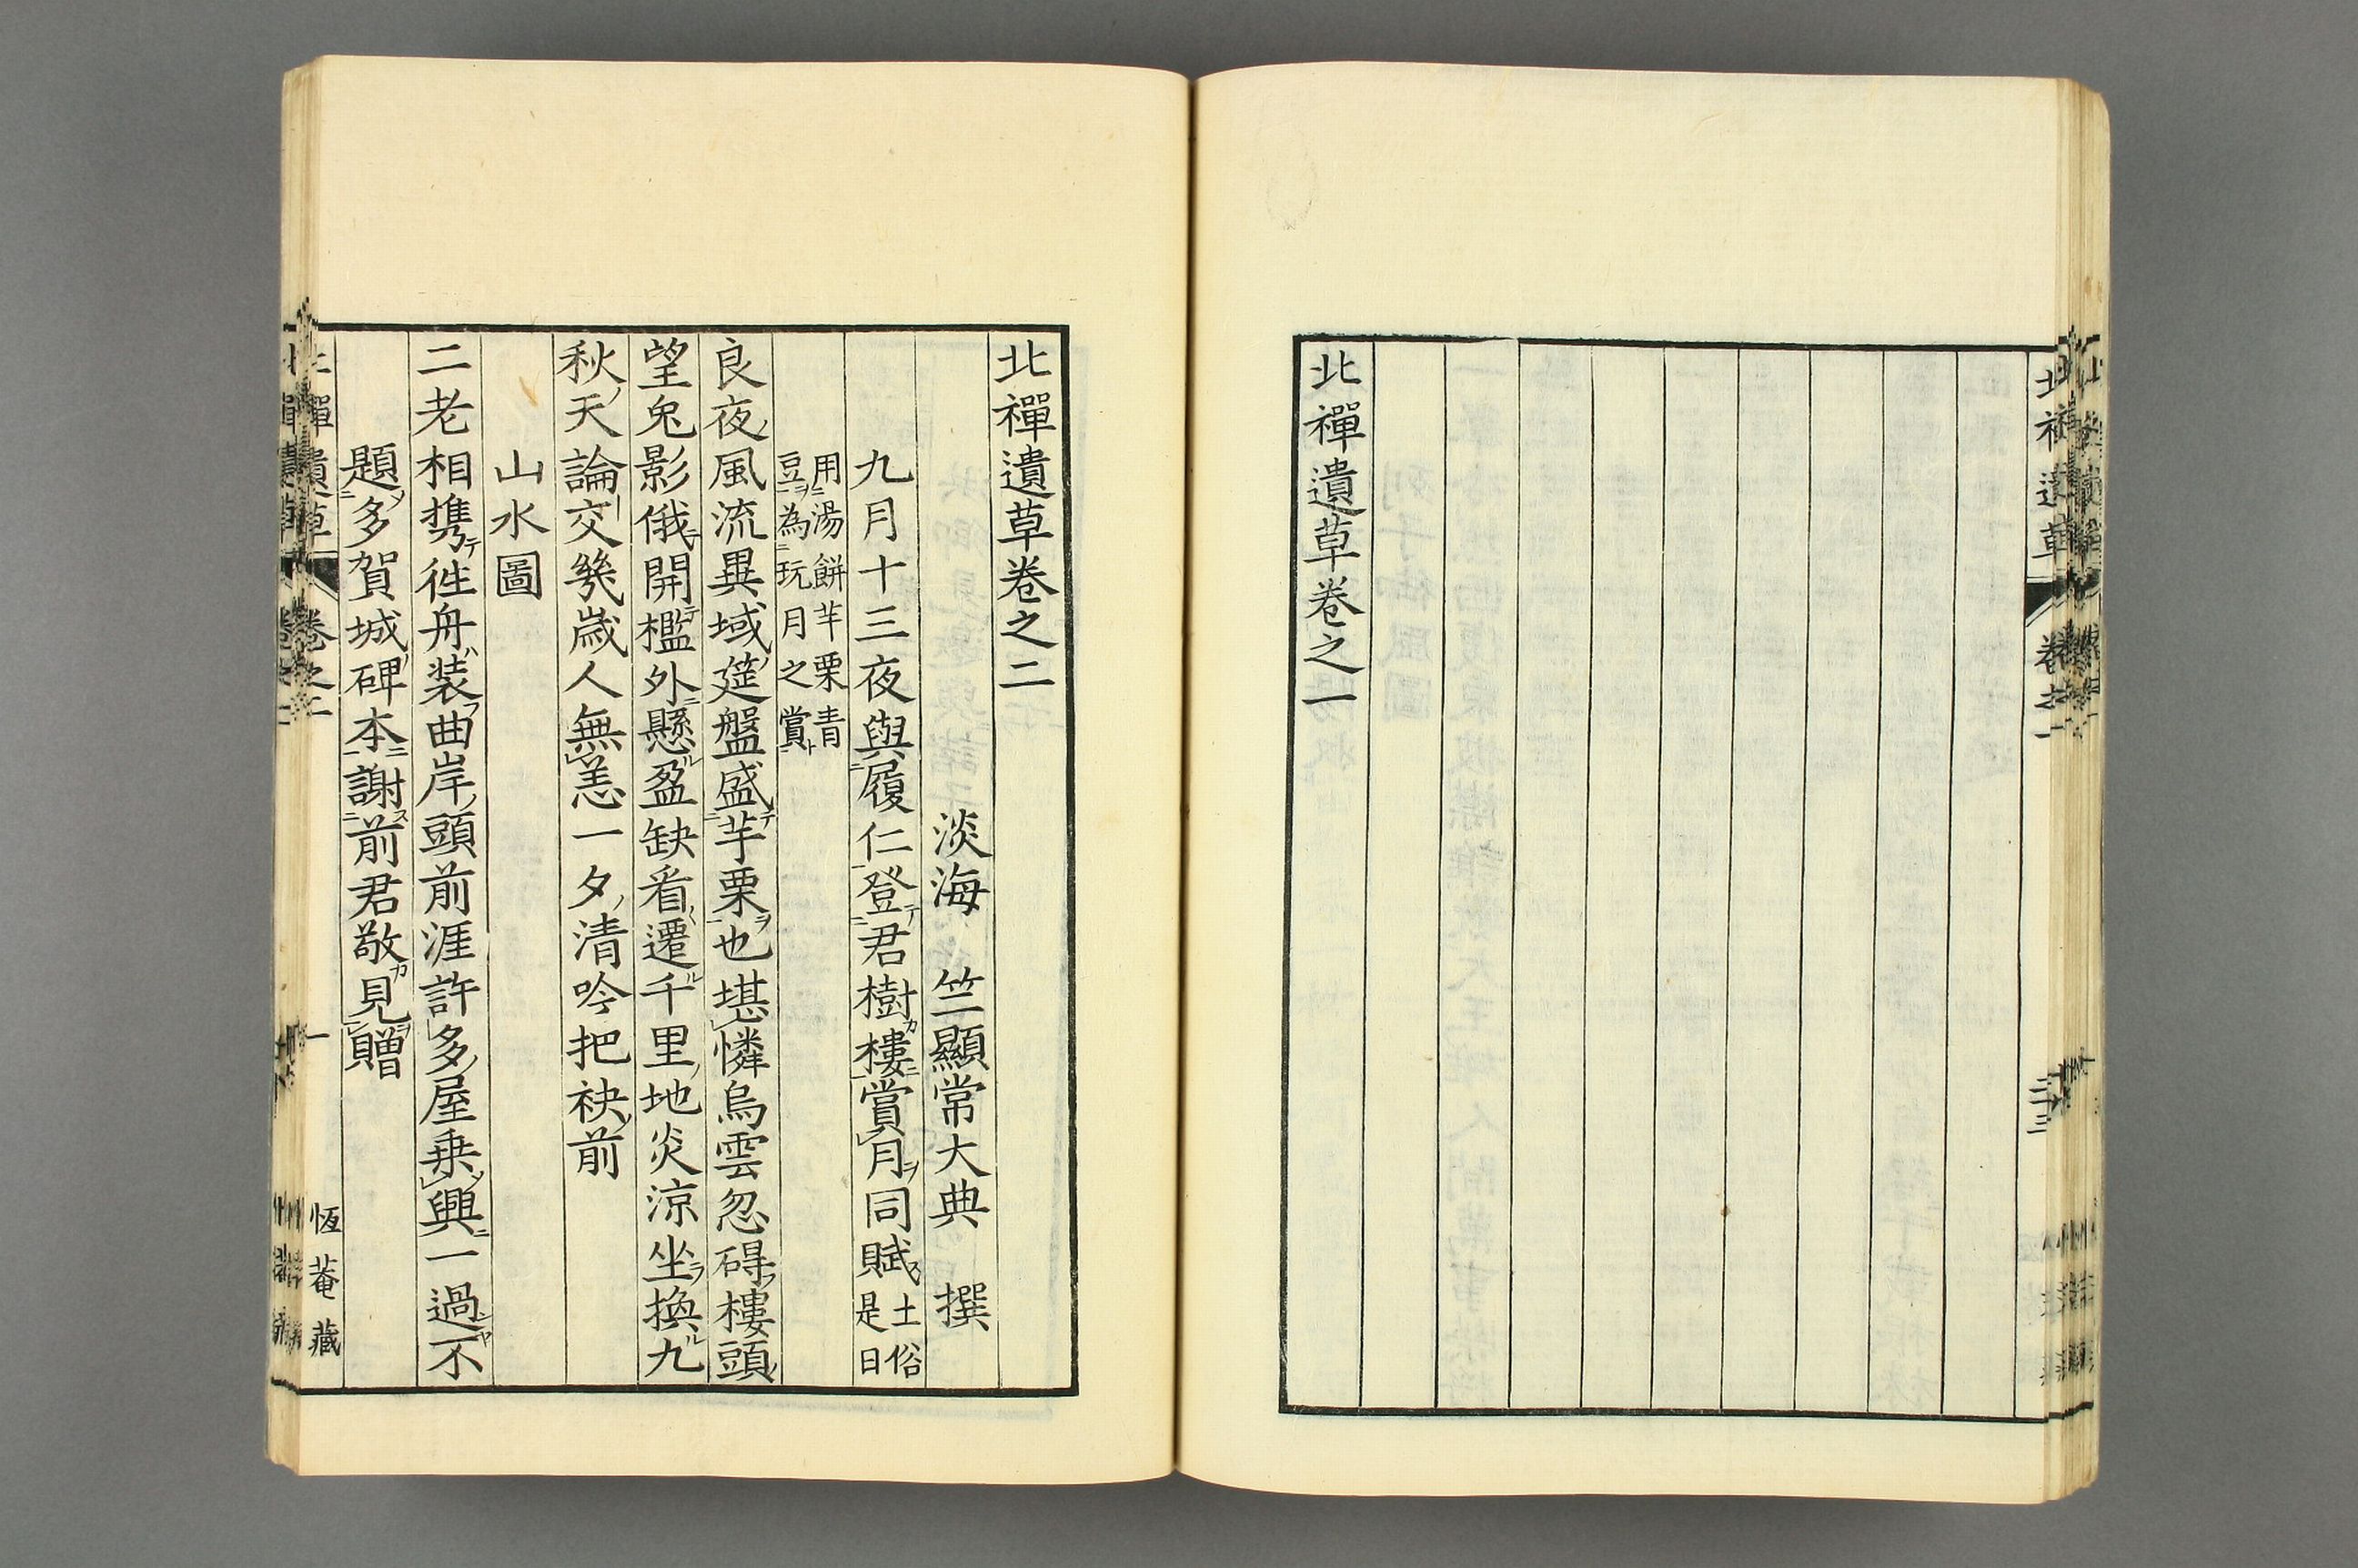 北禪遺草卷之一
北禪遺草卷之二
淡海 竺顯常大典 撰
九月十三夜與履仁登君樹樓賞月同賦土俗是日
用湯餅芋栗青
豆為玩月之賞
良夜風流異域筵盤盛芋栗也堪憐烏雲忽碍樓頭
望兔影俄開檻外懸盈缺看遷千里地炎涼坐換九
秋天論交幾歲人無恙一夕清吟把袂前
山水圖
二老相携徃舟裝曲岸頭前涯許多屋乗興一過不
題多賀城碑本謝前君敬見贈
卷之二
一
恆菴藏